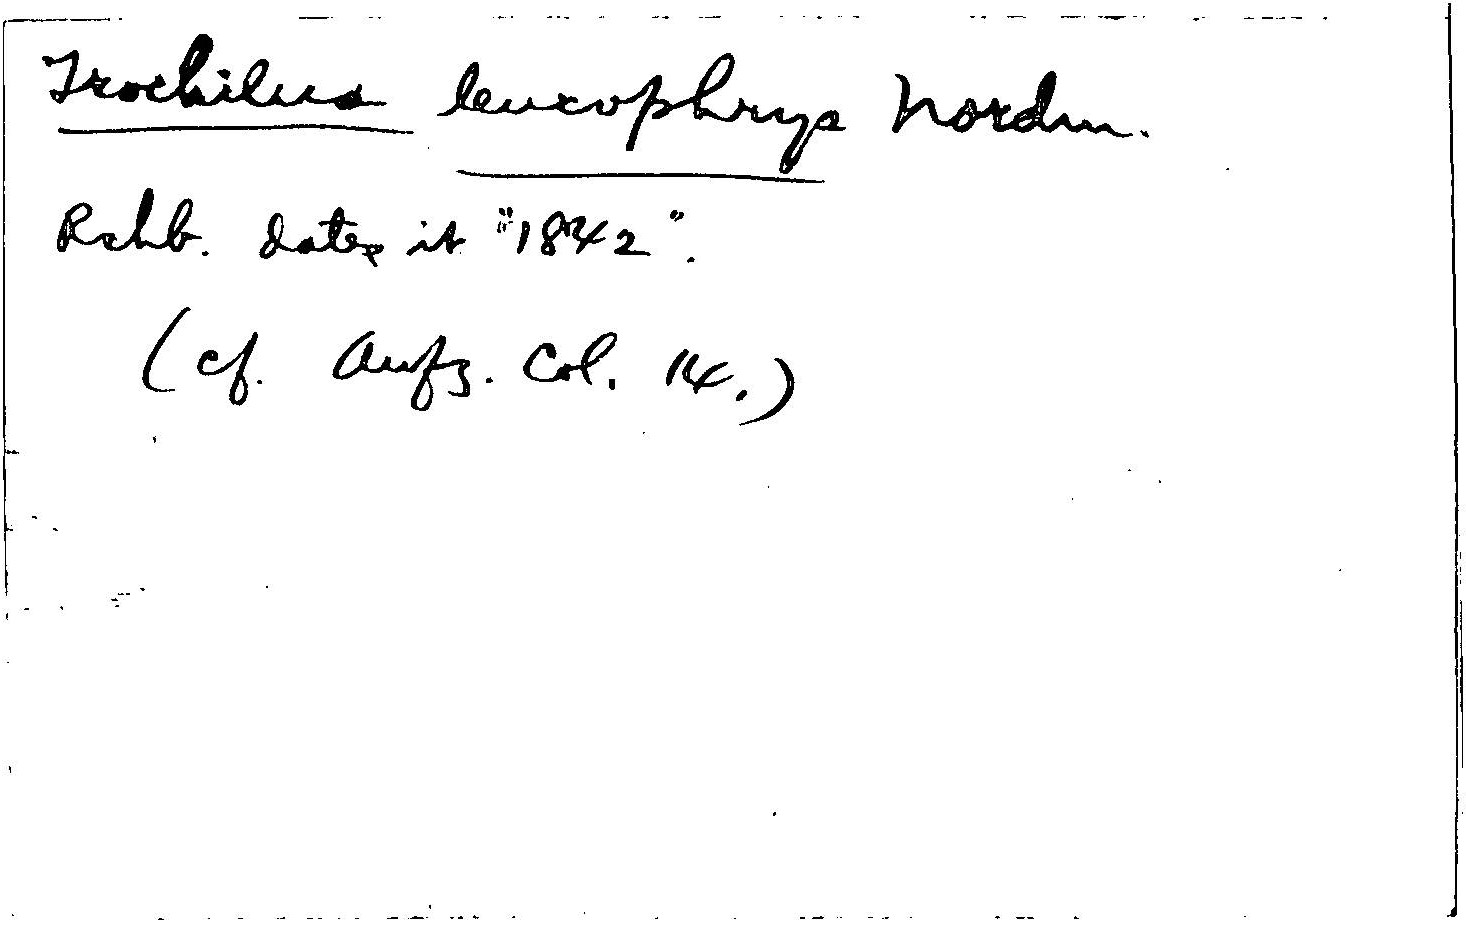 Trochilus leucophrys Nordm.
Rchb. dates it "1842".
(cf. Aufz. Col. 14.)